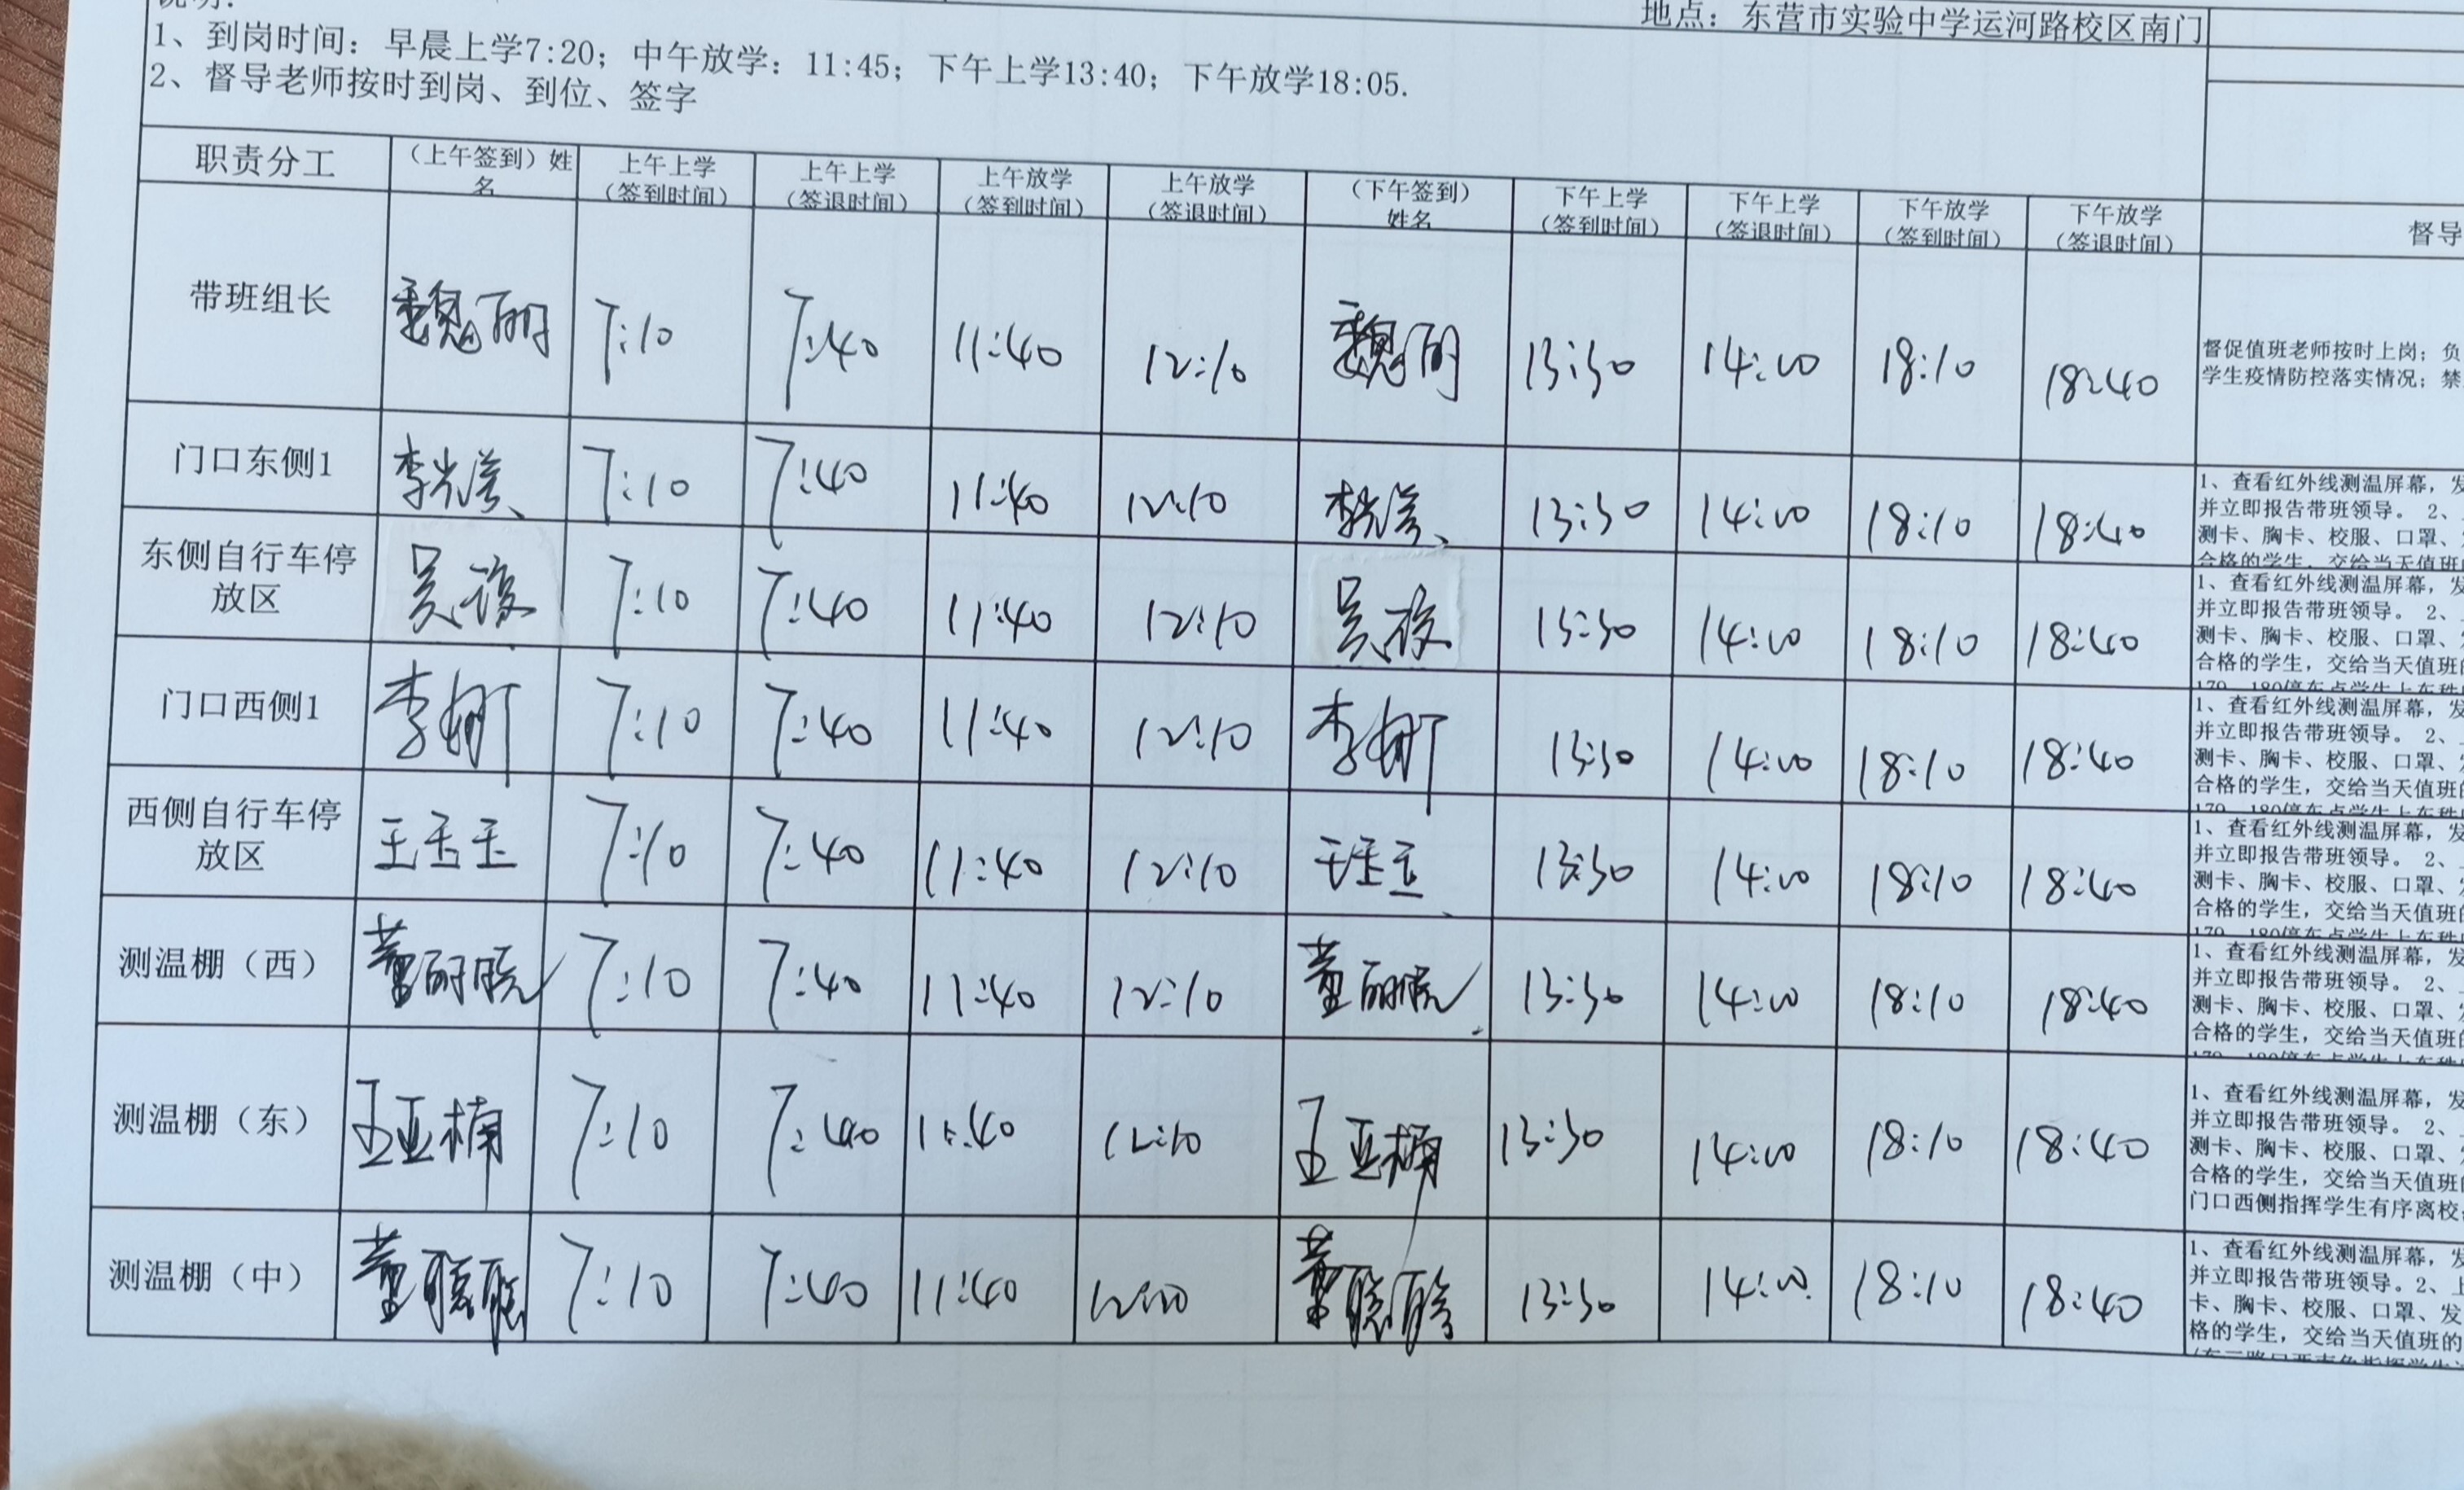 说明：
地点：东营市实验中学运河路校区南门
1、到岗时间：早晨上学7:20；中午放学：11:45；下午上学13:40；下午放学18:05.
2、督导老师按时到岗、到位、签字
职责分工 （上午签到）姓名 上午上学（签到时间） 上午上学（签退时间） 上午放学（签到时间） 上午放学（签退时间） （下午签到）姓名 下午上学（签到时间） 下午上学（签退时间） 下午放学（签到时间） 下午放学（签退时间） 督导
带班组长 魏丽 7:10 7:40 11:40 12:10 魏丽 13:30 14:00 18:10 18:40
督促值班老师按时上岗；负
学生疫情防控落实情况；禁
门口东侧1 7:10 7:40 11:40 12:10 13:30 14:00 18:10 18:40
1、查看红外线测温屏幕，发
并立即报告带班领导。 2、
测卡、胸卡、校服、口罩、
合格的学生，交给当天值班
东侧自行车停放区 吴 7:10 7:40 11:40 12:10 吴 13:30 14:00 18:10 18:40
1、查看红外线测温屏幕，发
并立即报告带班领导。 2、
测卡、胸卡、校服、口罩、
合格的学生，交给当天值班的
179、180停车点学生上车秩
门口西侧1 李娜 7:10 7:40 11:40 12:10 李娜 13:30 14:00 18:10 18:40
1、查看红外线测温屏幕，发
并立即报告带班领导。 2、
测卡、胸卡、校服、口罩、
合格的学生，交给当天值班的
179、180停车点学生上车秩
西侧自行车停放区 王玉玉 7:10 7:40 11:40 12:10 王玉玉 13:30 14:00 18:10 18:40
1、查看红外线测温屏幕，发
并立即报告带班领导。 2、
测卡、胸卡、校服、口罩、
合格的学生，交给当天值班的
179、180停车点学生上车秩
测温棚（西） 董丽晓 7:10 7:40 11:40 12:10 董丽晓 13:30 14:00 18:10 18:40
1、查看红外线测温屏幕，发
并立即报告带班领导。 2、
测卡、胸卡、校服、口罩、
合格的学生，交给当天值班的
179、180停车点学生上车秩
测温棚（东） 王亚楠 7:10 7:40 11:40 12:10 王亚楠 13:30 14:00 18:10 18:40
1、查看红外线测温屏幕，发
并立即报告带班领导。 2、
测卡、胸卡、校服、口罩、
合格的学生，交给当天值班的
门口西侧指挥学生有序离校
测温棚（中） 董聪聪 7:10 7:40 11:40 12:10 董聪聪 13:30 14:00 18:10 18:40
1、查看红外线测温屏幕，发
并立即报告带班领导。2、上
卡、胸卡、校服、口罩、发
格的学生，交给当天值班的